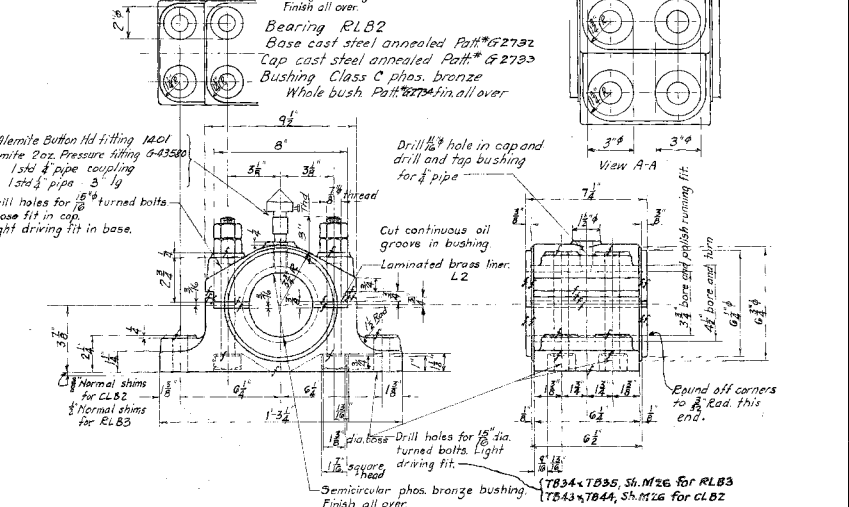 Finish all over.
Bearing RLB2
Base cast steel annealed Patt.# G2732
Cap cast steel annealed Patt.# G2733
Bushing Class C phos. bronze
Whole bush. Patt.#G2734 fin. all over
2"ϕ
3"ϕ
3"ϕ
View A-A
9 1/2"
8"
3 1/8"
3 1/8"
Alemite Button Hd fitting 1401
mite 2 oz. Pressure fitting G-43580
1 std 1/4" pipe coupling
1 std 1/4" pipe - 3" lg
ill holes for 15/16"ϕ turned bolts
ose fit in cap.
ght driving fit in base.
7/8"ϕ thread
Drill 11/16"ϕ hole in cap and
drill and tap bushing
for 1/4" pipe
Cut continuous oil
groove in bushing.
Laminated brass liner.
L2
7 1/4"
1 1/2"ϕ
3 3/4" bore and polish running fit
4 1/2" bore and turn
6 1/2"ϕ
6 3/4"ϕ
2 3/4"
3 7/8"
2 1/4"
1 1/4"
1 1/2" Rad
Normal shims
for CLB2
1/2" Normal shims
for RLB3
1 5/8"
6 1/4"
6 1/4"
1 3/8"
1'-3 1/4"
1 3/8" dia. boss
1 7/16" square
head
Drill holes for 15/16" dia.
turned bolts. Light
driving fit.
Semicircular phos. bronze bushing.
Finish all over
1 3/8"
1 3/4"
1 3/4"
1 3/8"
1/8"
6 1/4"
1/8"
6 1/2"
9/16"
13/16"
Round off corners
to 3/32" Rad. this
end.
TB34 & TB35, Sh. M26 for RLB3
TB43 & TB44, Sh. M26 for CLB2